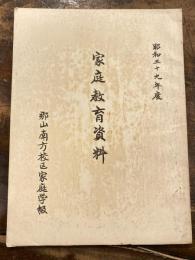 昭和三十九年度
家庭教育資料
那山南方校区家庭学級